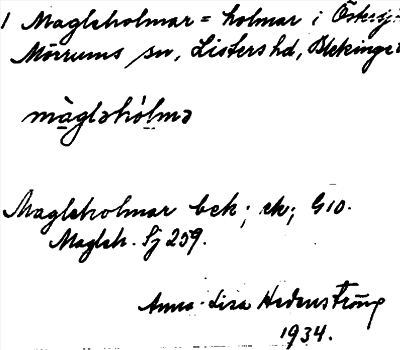 1 Magleholmar = holmar i Östersj:
Mörrums sn, Listers hd, Blekinge
màgləhólmə
Magleholmar bek; ek; G10.
Magleh. Sj 259.
Anna-Lisa Hedenström
1934.